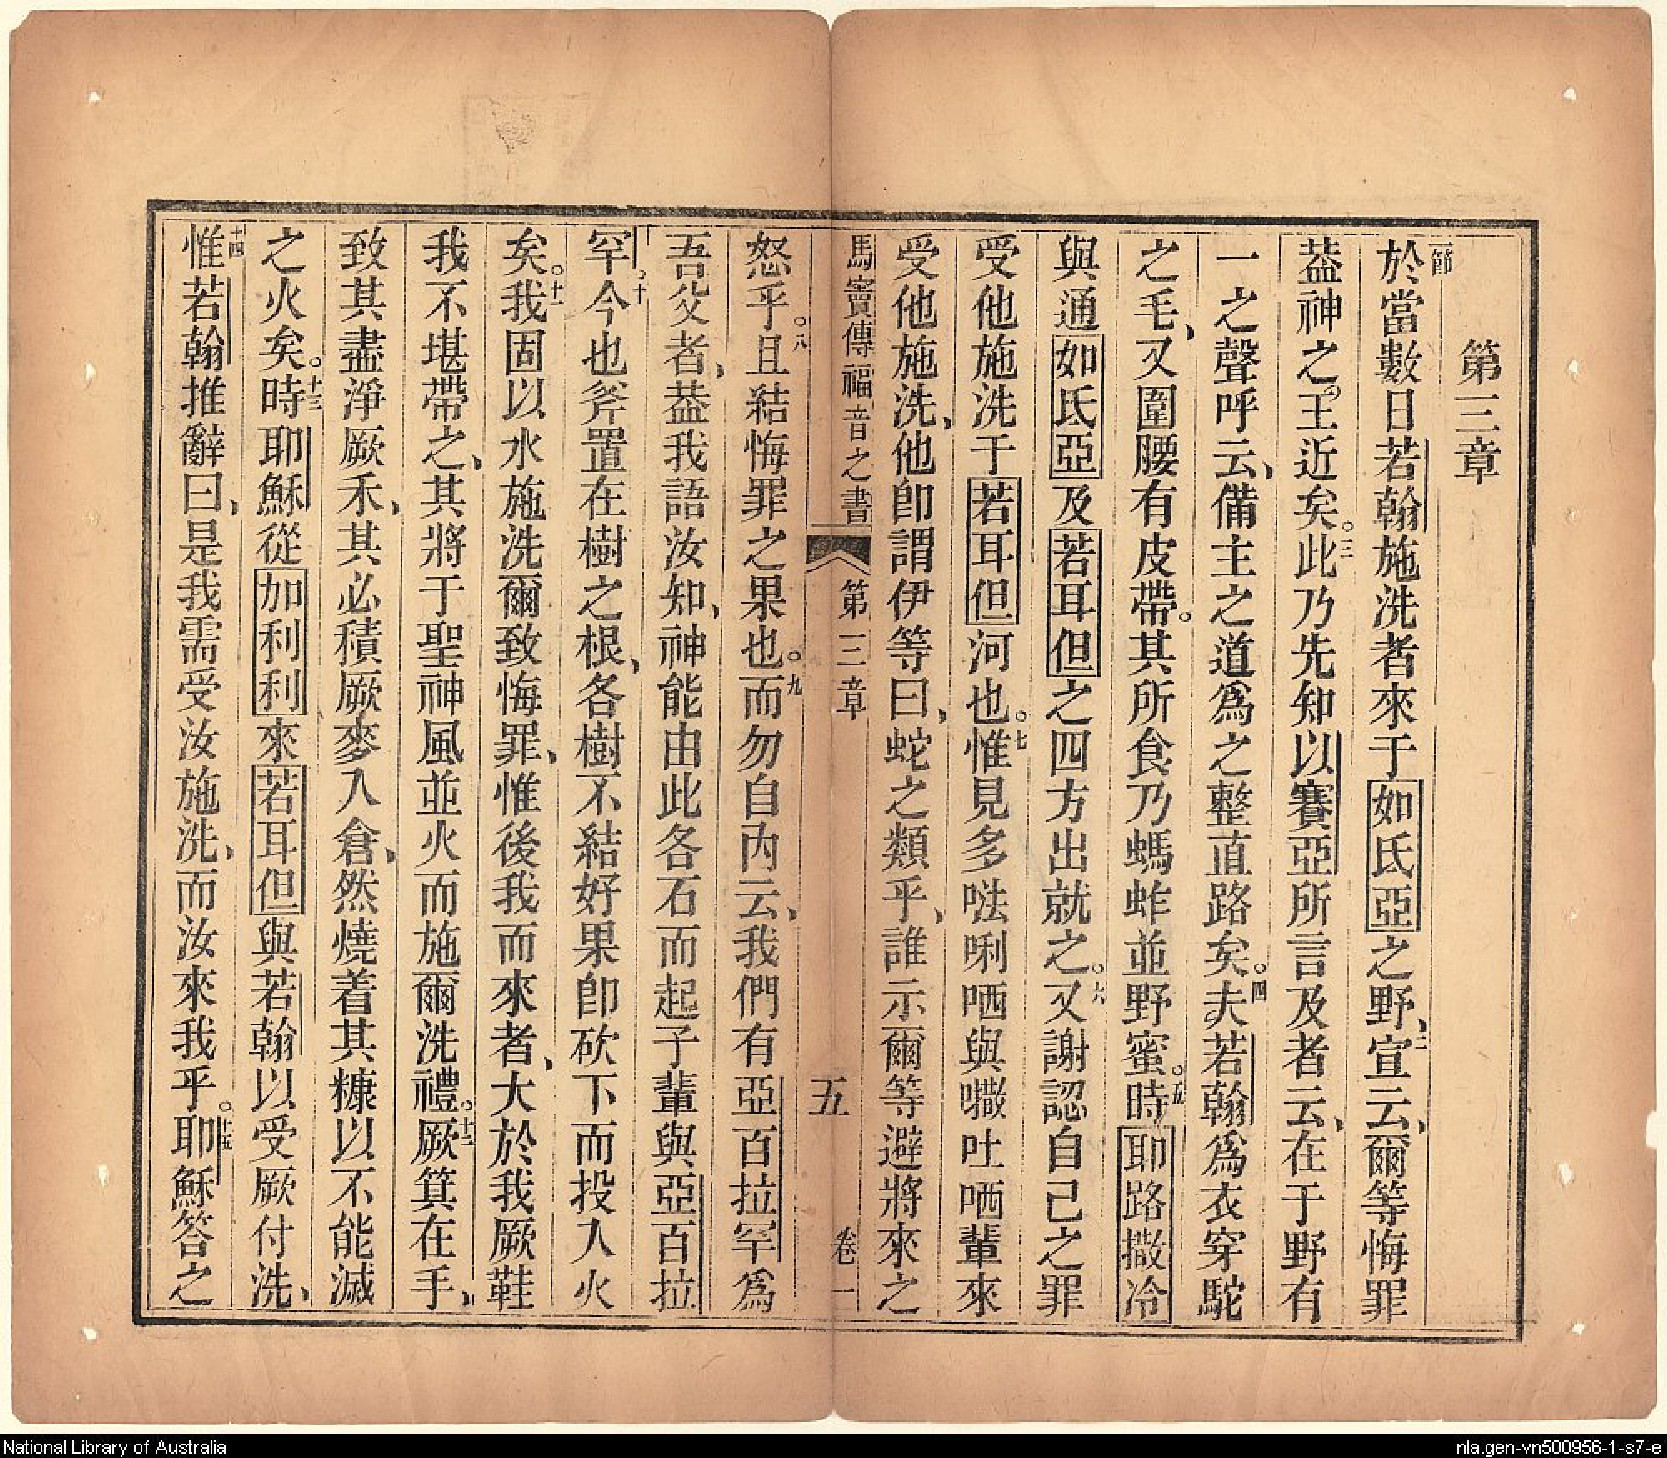 第三章
一節於當數日若翰施洗者來于如氐亞之野、二宣云、爾等悔罪
葢神之王近矣。三此乃先知以賽亞所言及者云、在于野有
一之聲呼云、備主之道爲之整直路矣。四夫若翰爲衣穿駝
之毛、又圍腰有皮帶。其所食乃螞蚱並野蜜。五時耶路撒冷
與通如氐亞及若耳但之四方出就之。六又謝認自己之罪
受他施洗于若耳但河也。七惟見多𠵽唎哂與㘔吐哂輩來
受他施洗、他卽謂伊等曰、蛇之類乎、誰示爾等避將來之
馬竇傳福音之書 第三章 五 卷一
怒乎。八且結悔罪之果也。九而勿自內云、我們有亞百拉罕爲
吾父者、葢我語汝知、神能由此各石而起子輩與亞百拉
罕。十今也斧置在樹之根、各樹不結好果卽砍下而投入火
矣。十一我固以水施洗爾致悔罪、惟後我而來者、大於我厥鞋
我不堪帶之、其將于聖神風並火而施爾洗禮。十二厥箕在手、
致其盡淨厥禾、其必積厥麥入倉、然燒着其糠以不能滅
之火矣。十三時耶穌從加利利來若耳但與若翰以受厥付洗、
十四惟若翰推辭曰、是我需受汝施洗、而汝來我乎。十五耶穌答之
National Library of Australia
nla.gen-vn500956-1-s7-e